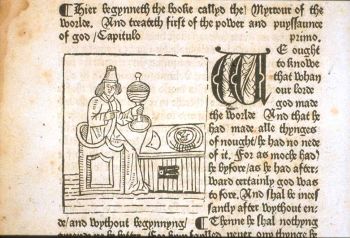 Hier begynneth the booke callyd the Myrrour of the
worlde. And treateth first of the power and puyssaunce
of god / Capitulo primo.
WE ought
to knowe
that whan
our lorde
god made
the worlde And that he
had made alle thynges
of nought / he had no nede
of it. For as moche had
he byfore / as he had after:
ward certainly god was
to fore. And shal be inces
santly after wythout en:
de / and wythout begynnyng / Therine he shal nothyng
never ony thynge